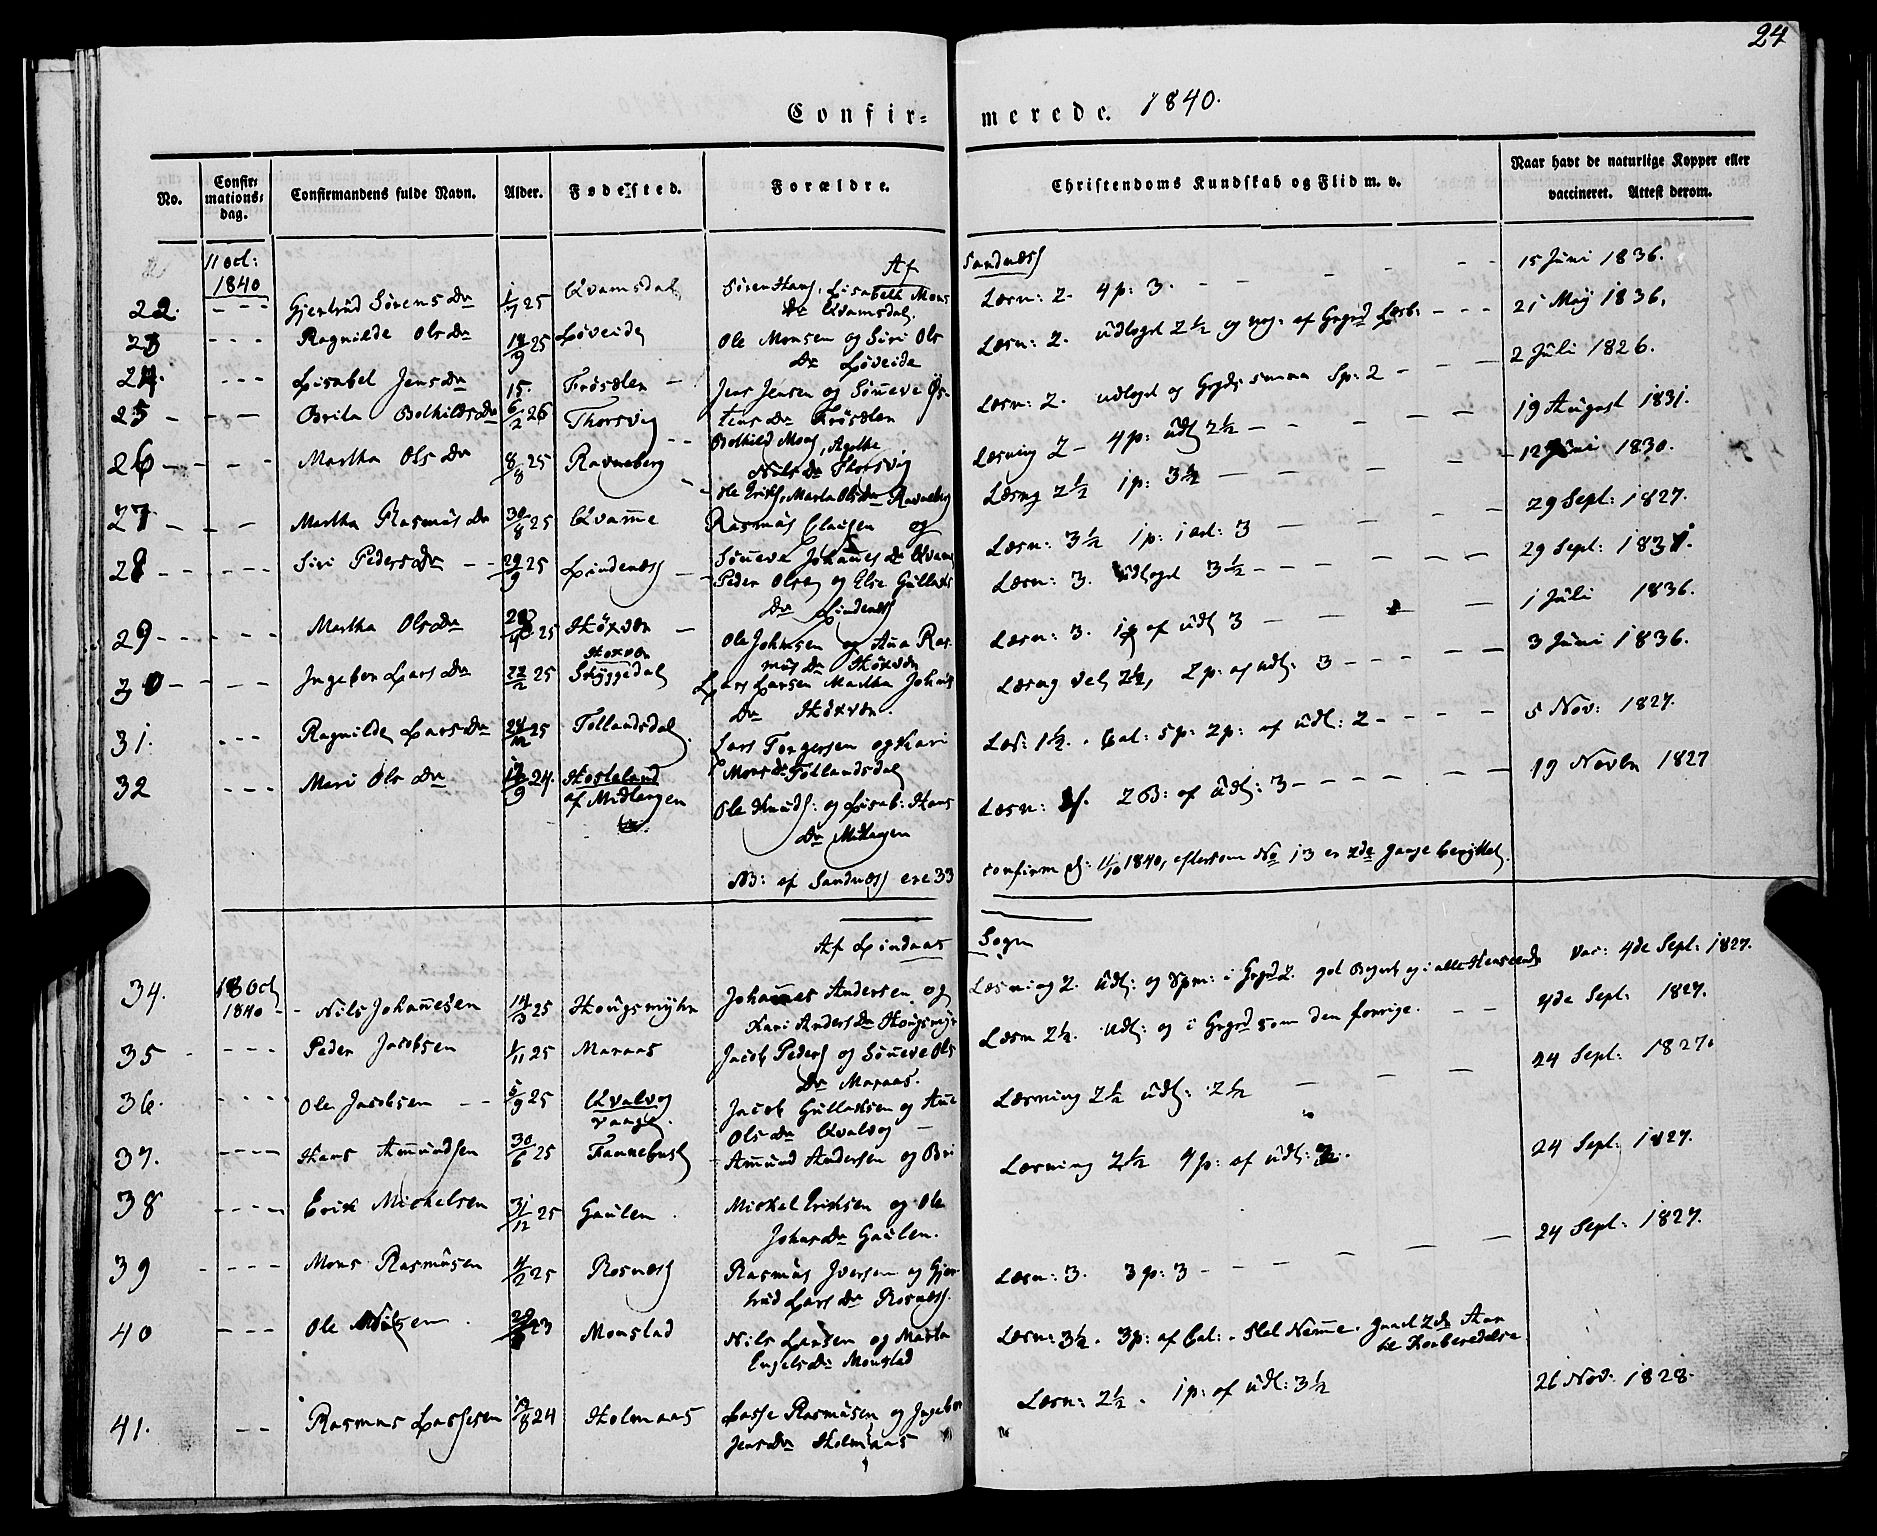 24
Confir-merede. 1840.
No. Confirmationsdag. Confirmandens fulde Navn. Alder. Fødested. Forældre. Christendoms Kundskab og Flid m. v. Naar havt de naturlige Kopper eller vaccineret. Attest derom.
11 Oct: 1840
Af Sandnæss
22. Gjertrud Sørens Dr 25 Qvamsdal Søren Hans, Lisabeth Mons Dr Qvamsdal. Læsn: 2. 4 p: 3. 15 Juni 1836.
23 Ragnilde Ols Dr 25 Løveide Ole Monsen og Siri Ols Dr Løveide Læsn: 2. udlagd 2½ og af 21 Maj 1836.
24. Lisabel Jens Dr 15. Frøsdlen Jens Jensen og Sönneve Øs-tens Dr Frøsdlen Læsn: 2. udlagd og Sp: 2 2 Juli 1826.
25 Brita Bothilds Dr 6/2 26 Thorsvig Bothild Mons, Agathe Nils Dr Thorsvig Læsning 2 4 p: udl 2½ 19 August 1831.
26 Martha Ols Dr 8/8 25 Ravneberg Ole Erichs, Marta Ols Dr Ravneberg Læsng 2½ 1 p: 3½ 12 Juni 1830.
27 Martha Rasmus Dr 30/8 25 Qvamme Rasmus Clausen og Sönneve Johannes Dr Qvam Læsn: 3½ 1 p: 1 art: 3 29 Sept: 1827.
28 Siri Peders Dr 29/9 25 Lindenæss Peder Olsen og Else Gullaks Dr Lindenæss Læsn: 3. Udlagd 3½ 29 Sept: 1831.
29 Martha Ols Dr 25 Høxven Ole Johnsen og Ana Rasmus Dr Høxven Læsn: 3. 1 p af udl 3 1 Juli 1836.
30 Ingebor Lars Dr 22/2 25 Høxven Styggedal Lars Larsen Martha Johns Dr Høxven. Læsng vel 2½, 2 p: af udl: 3 3 Juni 1836.
31. Ragnilde Lars Dr 25 Tollandsdal Lars Torgersen og Kari Mons Dr Tollandsdal Læs: 1½. Cat: 5 p: 2 p: af udl: 2 5 Nov: 1827.
32 Mari Ols Dr 24. Hosteland af Midtangen Ole Knuds: og Lisab: Hans Dr Midtangen Læsn: 2 B: af udl: 3 19 Novbr 1827
NB: af Sandnæss ere 33 confirm d: 11/10 1840, eftersom No 13 er 2de Gange benyttet.
Af Lindaas Sogn
34. 18 Oct 1840 Nils Johannesen 14/3 25 Hougsmyhr Johannes Andersen og Kari Anders Dr Hougsmyr Læsning 2. Udl: og Spm: i god og i alle Henseende Vac: 4de Sept: 1827.
35 Peder Jacobsen 1/11 25 Maraas Jacob Peders og Sönneve Ols Dr Maraas. Læsn 2½. Udl: og i som den forrige. 4de Sept: 1827.
36. Ole Jacobsen 5/9 25 Qvalvog vaage. Jacob Gullaksen og Ane Ols Dr Qvalvog Læsning 2½ udl: 2½ 24 Sept: 1827.
37. Hans Amundsen 30/6 25 Fannebust Amund Andersen og Bri Læsning 2½ 4 p: af udl: 24 Sept: 1827.
38 Erik Mickelsen 31/12 25 Gaulen. Mickel Eriksen og Ole Johns Dr Gaulen.
39 Mons Rasmusen 4/2 25 Rosnæss Rasmus Iversen og Gjertrud Lars Dr Rosnæss. Læsn: 3. 3 p: 3 24 Sept: 1827.
40 Ole Nilsen. 23 Monstad Nils Larsen og Marta Engels Dr Monstad Læsn: 3½. 3 p: af Cat: Slet Nemme. gaaet 2de Aar til Forberedelse.
41. Rasmus Lassesen 24 Holmaas Lasse Rasmusen og Ingebor Jens Dr Holmaas Læsn: 2½. 1 p: af udl: 3½ 26 Nov: 1828.